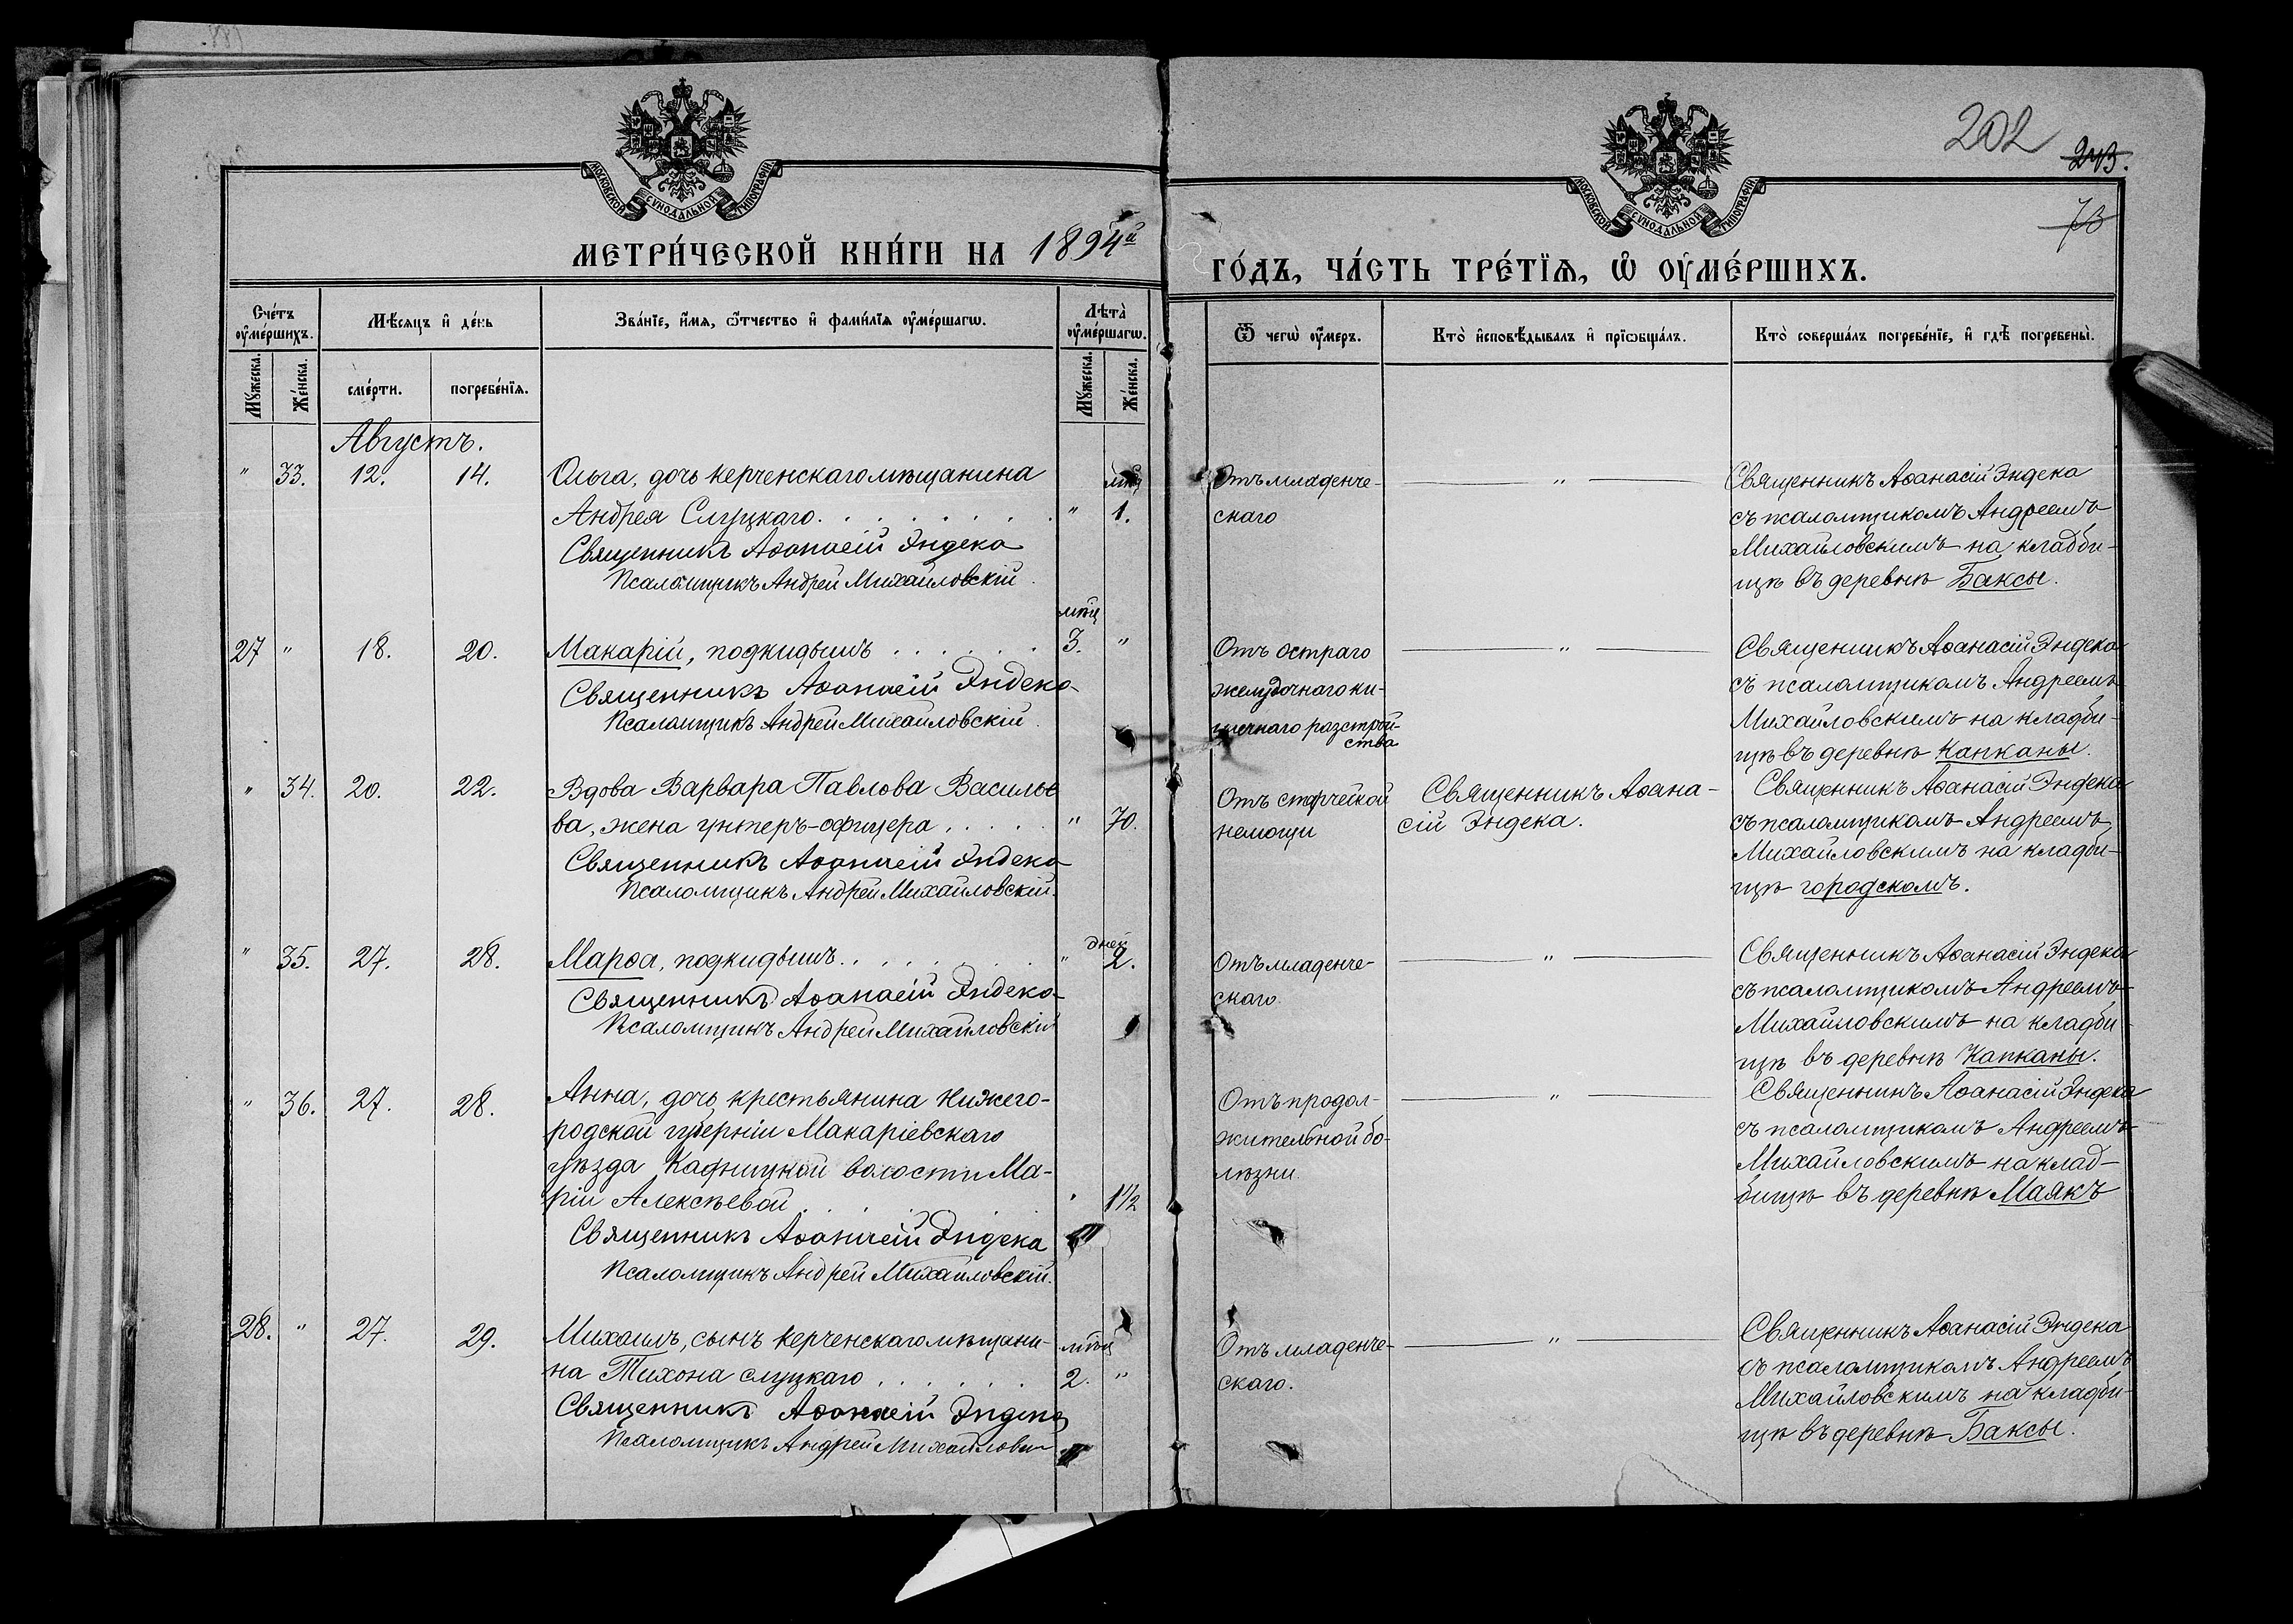 202
243.
73
МОСКОВСКОЙ СѴНОДАЛЬНОЙ ТИПОГРАФІИ
МОСКОВСКОЙ СѴНОДАЛЬНОЙ ТИПОГРАФІИ
МЕТРИ́ЧЕСКОЙ КНИ́ГИ НА 1894й
ГО́ДЪ, ЧА́СТЬ ТРЕ́ТЇѦ, Ѽ ОУ҆МЕ́РШИХЪ.
Сче́тъ оу҆ме́ршихъ.
Мѣ́сяцъ и҆ де́нь
Зва́нїе, и҆́мя, ѻ҆́тчество и҆ фами́лїя оу҆ме́ршагѡ.
Лѣта̀ оу҆ме́ршагѡ.
Ѿ чегѡ̀ оу҆́меръ.
Кто̀ и҆сповѣ́дывалъ и҆ прїѡбща́лъ.
Кто̀ соверша́лъ погребе́нїе, и҆ гдѣ̀ погребены̀.
Му́жеска.
Же́нска.
сме́рти.
погребе́нїя.
Му́жеска.
Же́нска.
Августъ.
" 33. 12. 14. Ольга, дочь керченскаго мѣщанина мѣц
Андрея Слуцкаго. " 1.
Священникъ Аѳанасій Эндека
Псаломщикъ Андрей Михайловскій.
Отъ младенче-
скаго
"
Священникъ Аѳанасій Эндека
съ псаломщикомъ Андреемъ
Михайловскимъ на кладби-
щѣ въ деревнѣ Баксы.
мѣц
27 " 18. 20. Макарій, подкидышъ 3. "
Священникъ Аѳанасій Эндека
Псаломщикъ Андрей Михайловскій.
Отъ остраго
желудочнаго ки-
шечнаго разстрой-
ства
"
Священникъ Аѳанасій Эндека
съ псаломщикомъ Андреемъ
Михайловскимъ на кладби-
щѣ въ деревнѣ Капканы.
" 34. 20. 22. Вдова Варвара Павлова Василье
ва, жена унтеръ-офицера " 70.
Священникъ Аѳанасій Эндека
Псаломщикъ Андрей Михайловскій.
Отъ старческой
немощи
Священникъ Аѳана-
сій Эндека.
Священникъ Аѳанасій Эндека
съ псаломщикомъ Андреемъ
Михайловскимъ на кладби-
щѣ городскомъ.
дней
" 35. 27. 28. Марѳа, подкидышъ. " 2.
Священникъ Аѳанасій Эндека
Псаломщикъ Андрей Михайловскій
Отъ младенче-
скаго.
"
Священникъ Аѳанасій Эндека
съ псаломщикомъ Андреемъ
Михайловскимъ на кладби-
щѣ въ деревнѣ Капканы.
" 36. 27. 28. Анна, дочь крестьянина Нижего-
родской губерніи Макаріевскаго
уѣзда Кафтицкой волости Ма-
ріи Алексѣевой " 1½
Священникъ Аѳанасій Эндека
Псаломщикъ Андрей Михайловскій.
Отъ продол-
жительной бо-
лѣзни.
"
Священникъ Аѳанасій Эндека
съ псаломщикомъ Андреемъ
Михайловскимъ на клад-
бищѣ въ деревнѣ Маякъ
28. " 27. 29. Михаилъ, сынъ керченскаго мѣщани- мѣц
на Тихона Слуцкаго 2. "
Священникъ Аѳанасій Эндека
Псаломщикъ Андрей Михайловскій
Отъ младенче-
скаго.
"
Священникъ Аѳанасій Эндека
съ псаломщикомъ Андреемъ
Михайловскимъ на кладби-
щѣ въ деревнѣ Баксы.